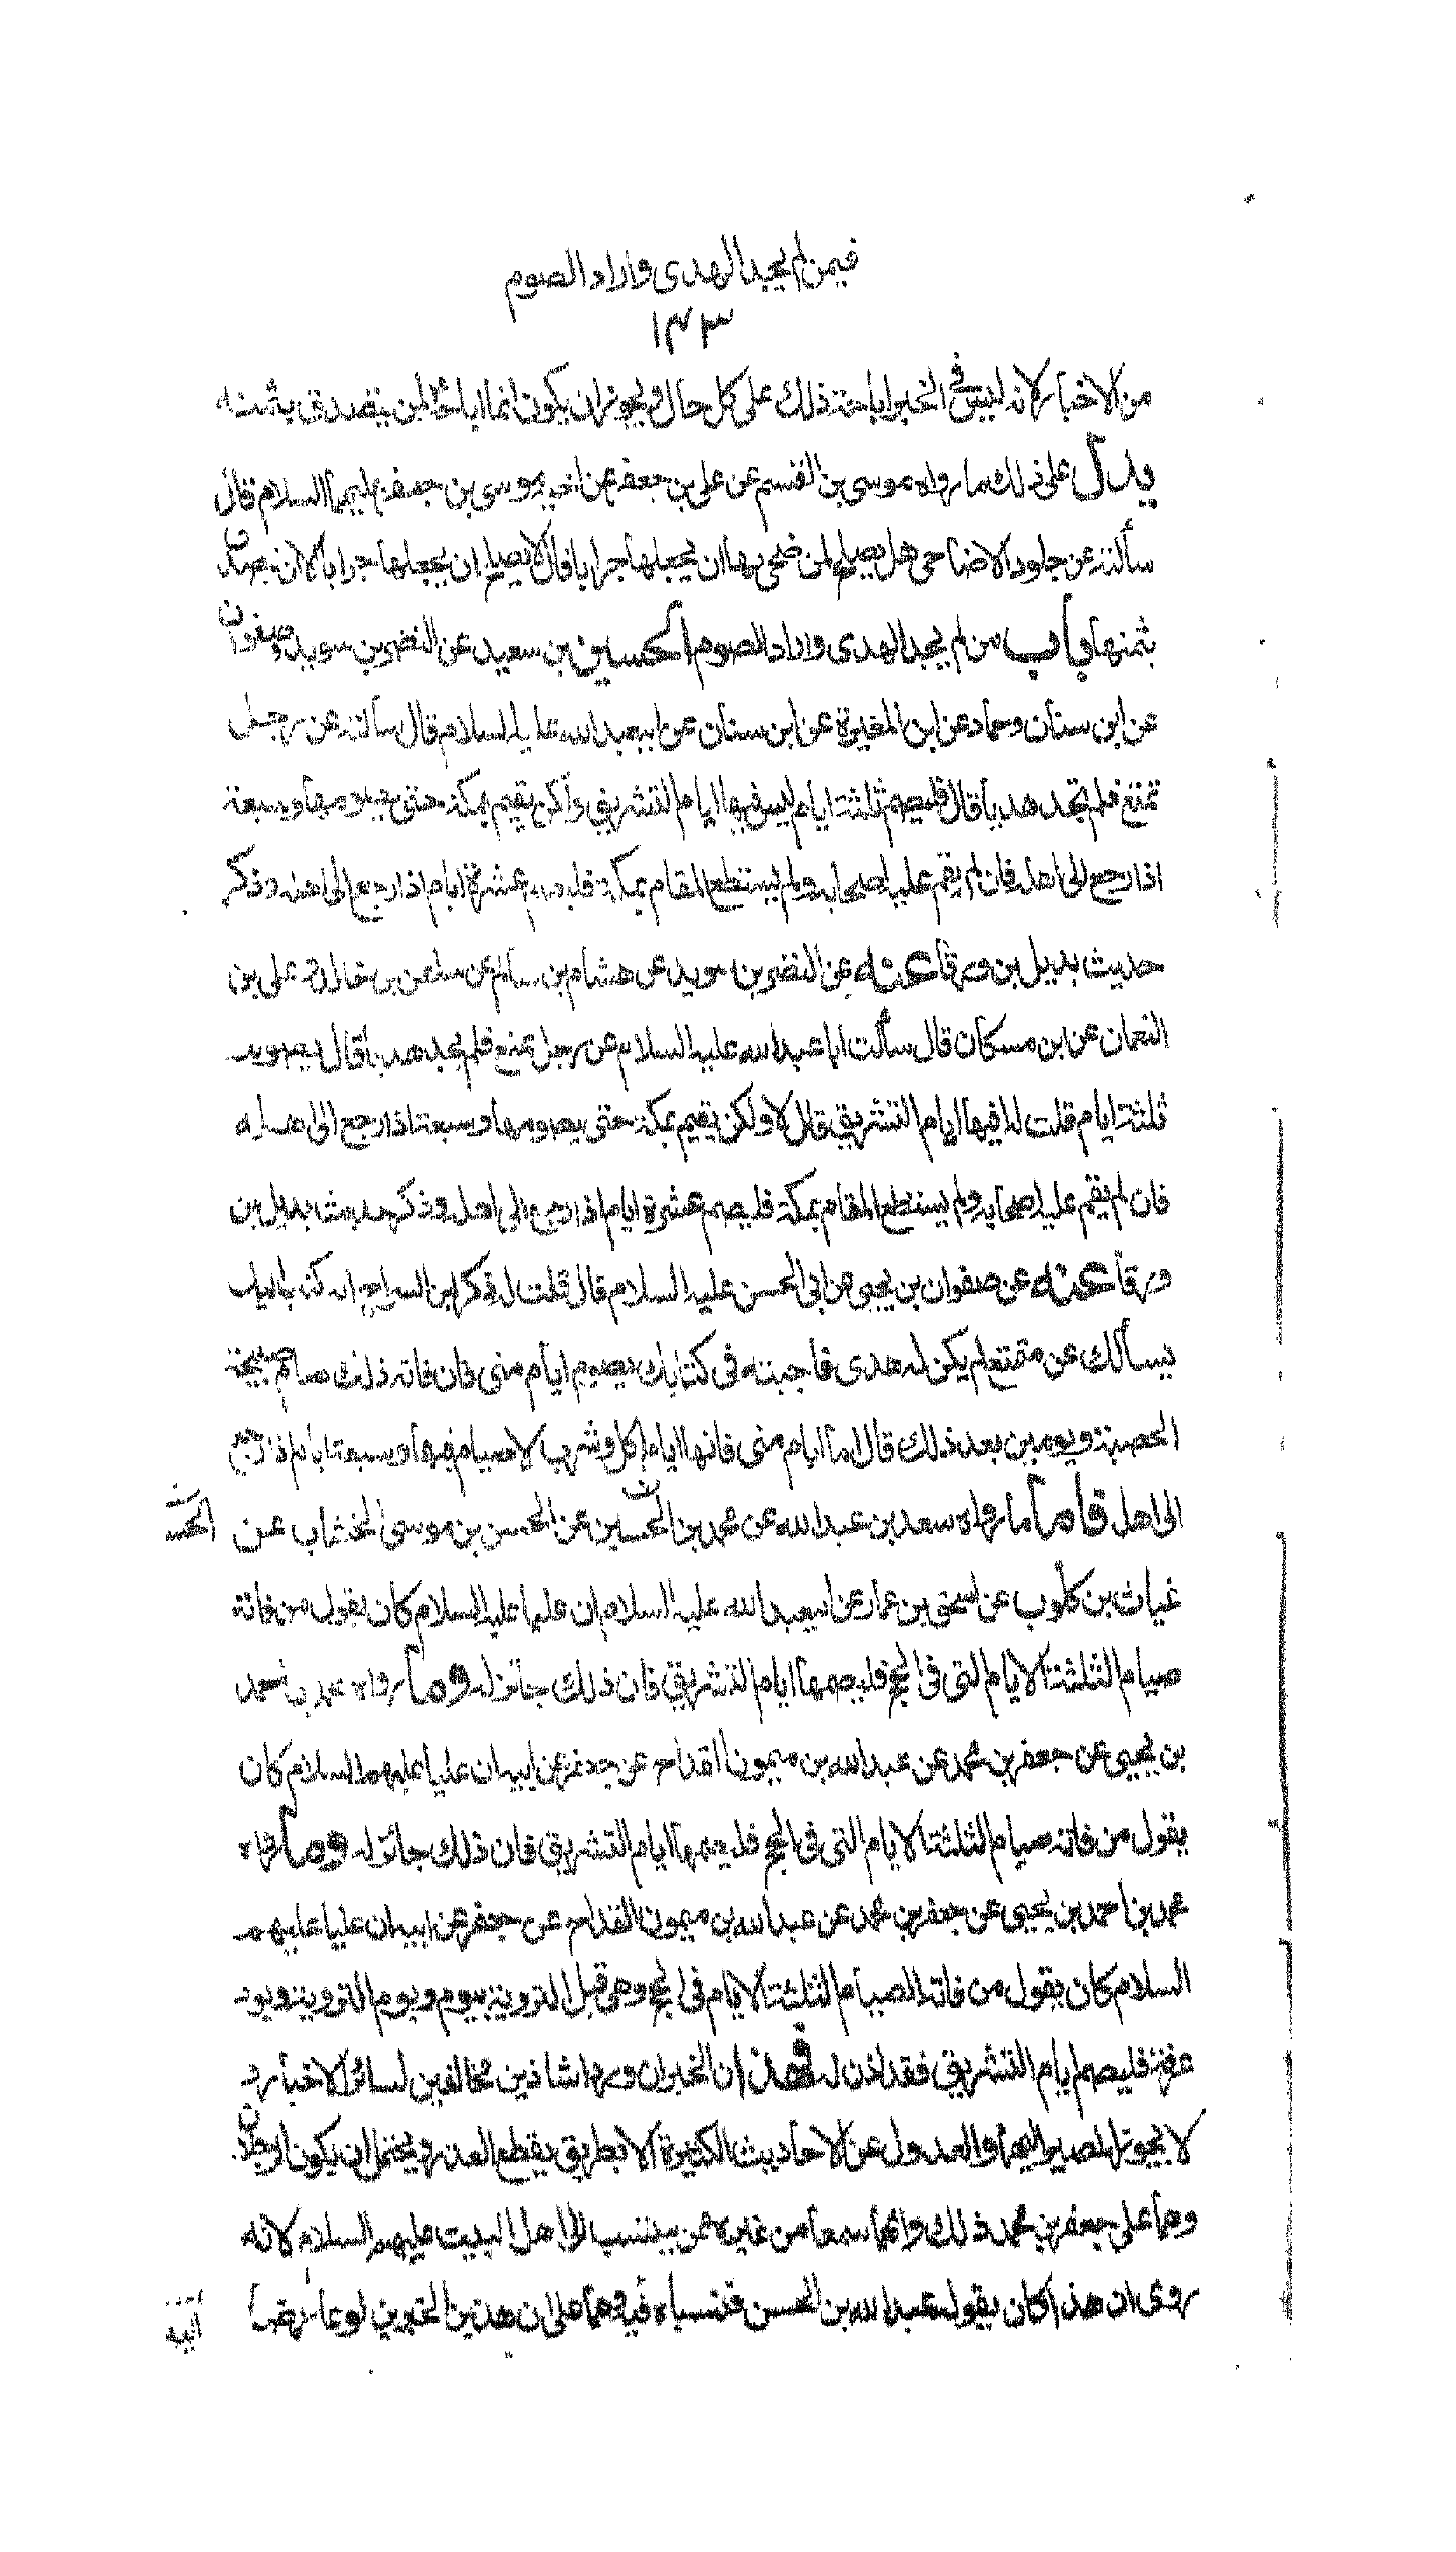 فيمن لم يجد الهدى واراد الصوم
١٤٣
من الاخبار لانه ليس في الخبر اباحة ذلك على كل حال ويجوز ان يكون انما اباحه لمن يتصدق بثمنه
يدل على ذلك ما رواه موسى بن القسم عن على بن جعفر عن اخيه موسى بن جعفر عليهما السلام قال
سألته عن جلود الاضاحى هل يصلح لمن ضحى بها ان يجعلها جرابا قال لا يصلح ان يجعلها جرابا الا ان يتصدق
بثمنها باب من لم يجد الهدى واراد الصوم الحسين بن سعيد عن النضر بن سويد وصفوان
عن ابن سنان وحماد عن ابن المغيرة عن ابن سنان عن ابيعبد الله عليه السلام قال سألته عن رجل
تمتع فلم يجد هديا قال فليصم ثلثة ايام ليس فيها ايام التشريق ولكن يقيم بمكة حتى يصومها وسبعة
اذا رجع الى اهله فان لم يقم عليه اصحابه ولم يستطع المقام بمكة فليصم عشرة ايام اذا رجع الى اهله وذكر
حديث بديل بن ورقا عنه عن النضر بن سويد عن هشام بن سالم عن سليمن بن خالد وعلى بن
النعمان عن ابن مسكان قال سألت ابا عبد الله عليه السلام عن رجل تمتع فلم يجد هديا قال يصوم
ثلثة ايام قلت له افيها ايام التشريق قال لا ولكن يقيم بمكة حتى يصومها وسبعة اذا رجع الى اهله
فان لم يقم عليه اصحابه ولم يستطع المقام بمكة فليصم عشرة ايام اذا رجع الى اهله وذكر حديث بديل بن
ورقا عنه عن صفوان بن يحيى عن ابى الحسن عليه السلام قال قلت له ذكر ابن السراج انه كتب اليك
يسألك عن متمتع لم يكن له هدى فاجبته فى كتابك يصوم ايام منى فان فاته ذلك صام صبيحة
الحصبة ويومين بعد ذلك قال اما ايام منى فانها ايام اكل وشرب لا صيام فيها وسبعة ايام اذا رجع
الى اهله فاما ما رواه سعد بن عبد الله عن محمد بن الحسين عن الحسن بن موسى الخشاب عن
غياث بن كلوب عن اسحق بن عمار عن ابيعبد الله عليه السلام ان عليا عليه السلام كان يقول من فاته
صيام الثلثة الايام التى فى الحج فليصمها ايام التشريق فان ذلك جائز له وما رواه محمد بن احمد
بن يحيى عن جعفر بن محمد عن عبد الله بن ميمون القداح عن جعفر عن ابيه ان عليا عليهم السلام كان
يقول من فاته صيام الثلثة الايام التى فى الحج فليصمها ايام التشريق فان ذلك جائز له وما رواه
محمد بن احمد بن يحيى عن جعفر بن محمد عن عبد الله بن ميمون القداح عن جعفر عن ابيه ان عليا عليهم
السلام كان يقول من فاته الصيام الثلثة الايام فى الحج وهى قبل التروية بيوم ويوم التروية ويوم
عرفة فليصم ايام التشريق فقد اذن له فهذان الخبران وردا شاذين مخالفين لسائر الاخبار و
لا يجوز المصير اليهما والعدول عن الاحاديث الكثيرة الا بطريق يقطع العذر ويحتمل ان يكون الرجلان
وهما على جعفر بن محمد ذلك وانهما سمعا من غيره ممن ينتسب الى اهل البيت عليهم السلام لانه
روى ان هذا كان يقوله عبد الله بن الحسن فنسباه فيه وهما على ان هذين الخبرين لو عارضا